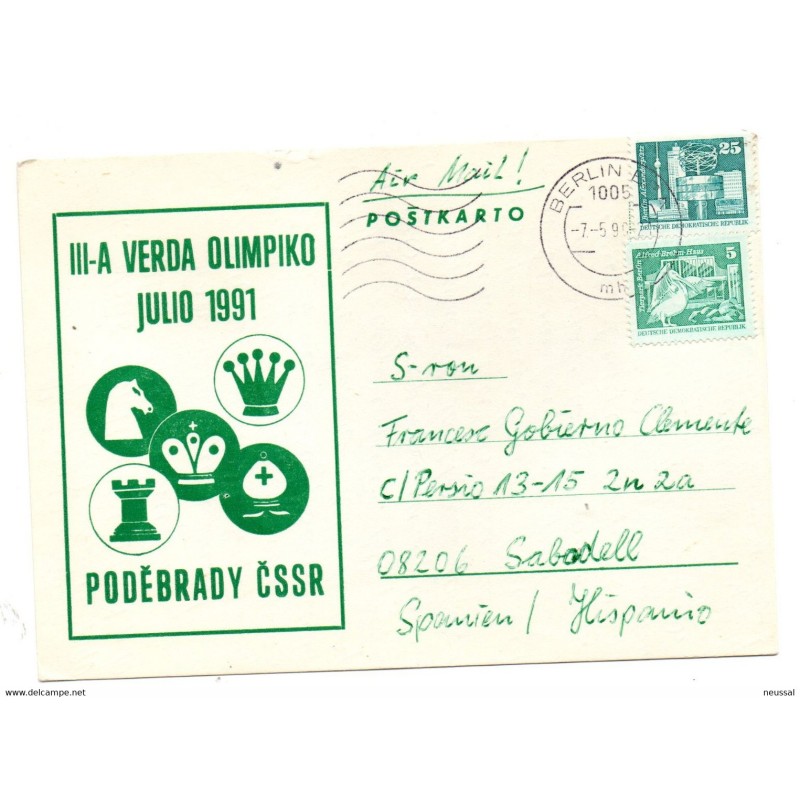 Air Mail!
POŜTKARTO
BERLIN
1005
-7.-5.90
mh
25
Berlin-Alexanderplatz
DEUTSCHE DEMOKRATISCHE REPUBLIK
Alfred-Brehm-Haus
5
Tierpark Berlin
DEUTSCHE DEMOKRATISCHE REPUBLIK
III-A VERDA OLIMPIKO
JULIO 1991
PODĚBRADY ČSSR
S-ron
Francesc Gobierno Clemente
c/Persio 13-15 2n 2a
08206 Sabadell
Spanien/ Hispanio
www.delcampe.net
neussal